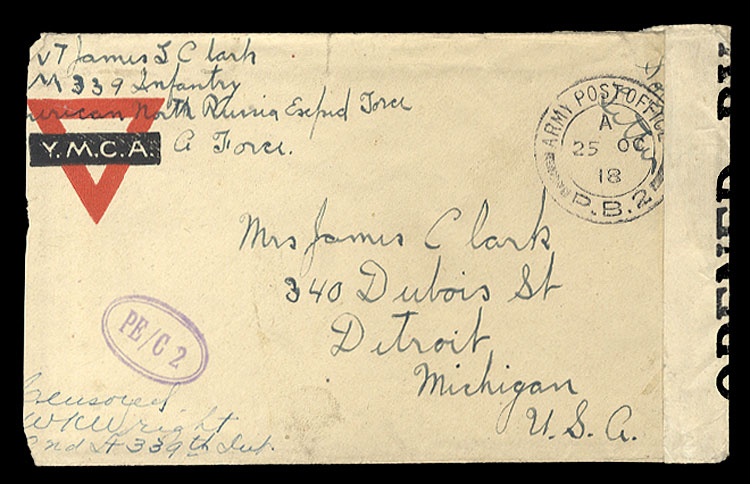 James S Clark
339 Infantry
North Russia Exped Force
A Force.
Y.M.C.A.
ARMY POST OFFICE
A
25 OC
18
P.B.2
Mrs James Clark
340 Dubois St
Detroit
Michigan
U.S.A.
PE/C 2
Censored
WKWright
2nd Lt 339th Inf.
OPENED BY